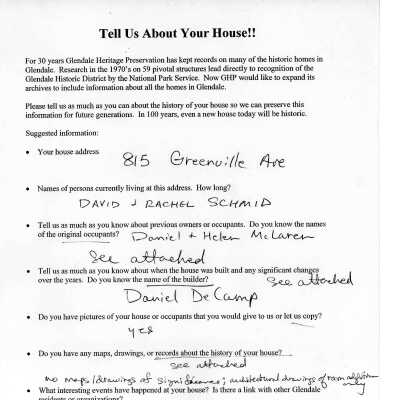 Tell Us About Your House!!
For 30 years Glendale Heritage Preservation has kept records on many of the historic homes in
Glendale. Research in the 1970's on 59 pivotal structures lead directly to recognition of the
Glendale Historic District by the National Park Service. Now GHP would like to expand its
archives to include information about all the homes in Glendale.
Please tell us as much as you can about the history of your house so we can preserve this
information for future generations. In 100 years, even a new house today will be historic.
Suggested information:
• Your house address
815 Greenville Ave
• Names of persons currently living at this address. How long?
DAVID & RACHEL SCHMID
• Tell us as much as you know about previous owners or occupants. Do you know the names
of the original occupants? Daniel + Helen McLaren
See attached
• Tell us as much as you know about when the house was built and any significant changes
over the years. Do you know the name of the builder? See attached
Daniel DeCamp
• Do you have pictures of your house or occupants that you would give to us or let us copy?
yes
• Do you have any maps, drawings, or records about the history of your house?
see attached
no maps/drawings of significance; architectural drawings of room addition
only
• What interesting events have happened at your house? Is there a link with other Glendale
residents or organizations?